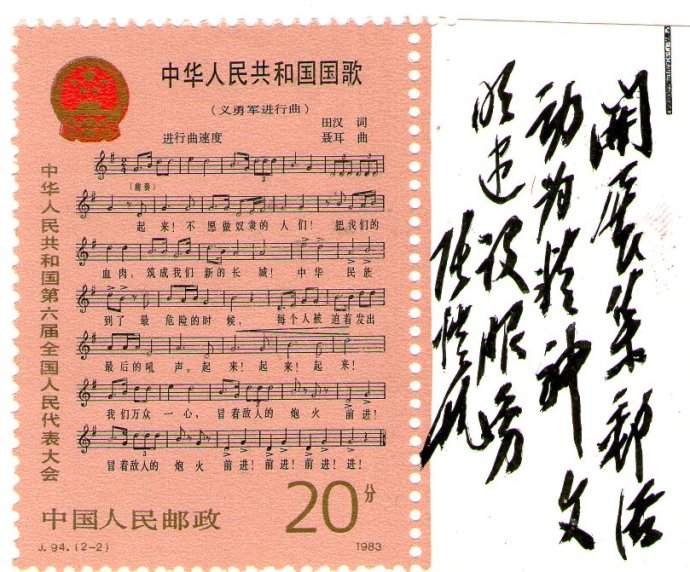 中华人民共和国国歌
(义勇军进行曲)
田汉 词
进行曲速度 聂耳 曲
中华人民共和国第六届全国人民代表大会
(前奏)
起来!不愿做奴隶的人们!把我们的
血肉,筑成我们新的长城!中华民族
到了最危险的时候,每个人被迫着发出
最后的吼声。起来!起来!起来!
我们万众一心,冒着敌人的炮火前进!
冒着敌人的炮火前进!前进!前进!进!
20分
中国人民邮政
J.94.(2-2) 1983
开展集邮活
动为精神文
明建设服务